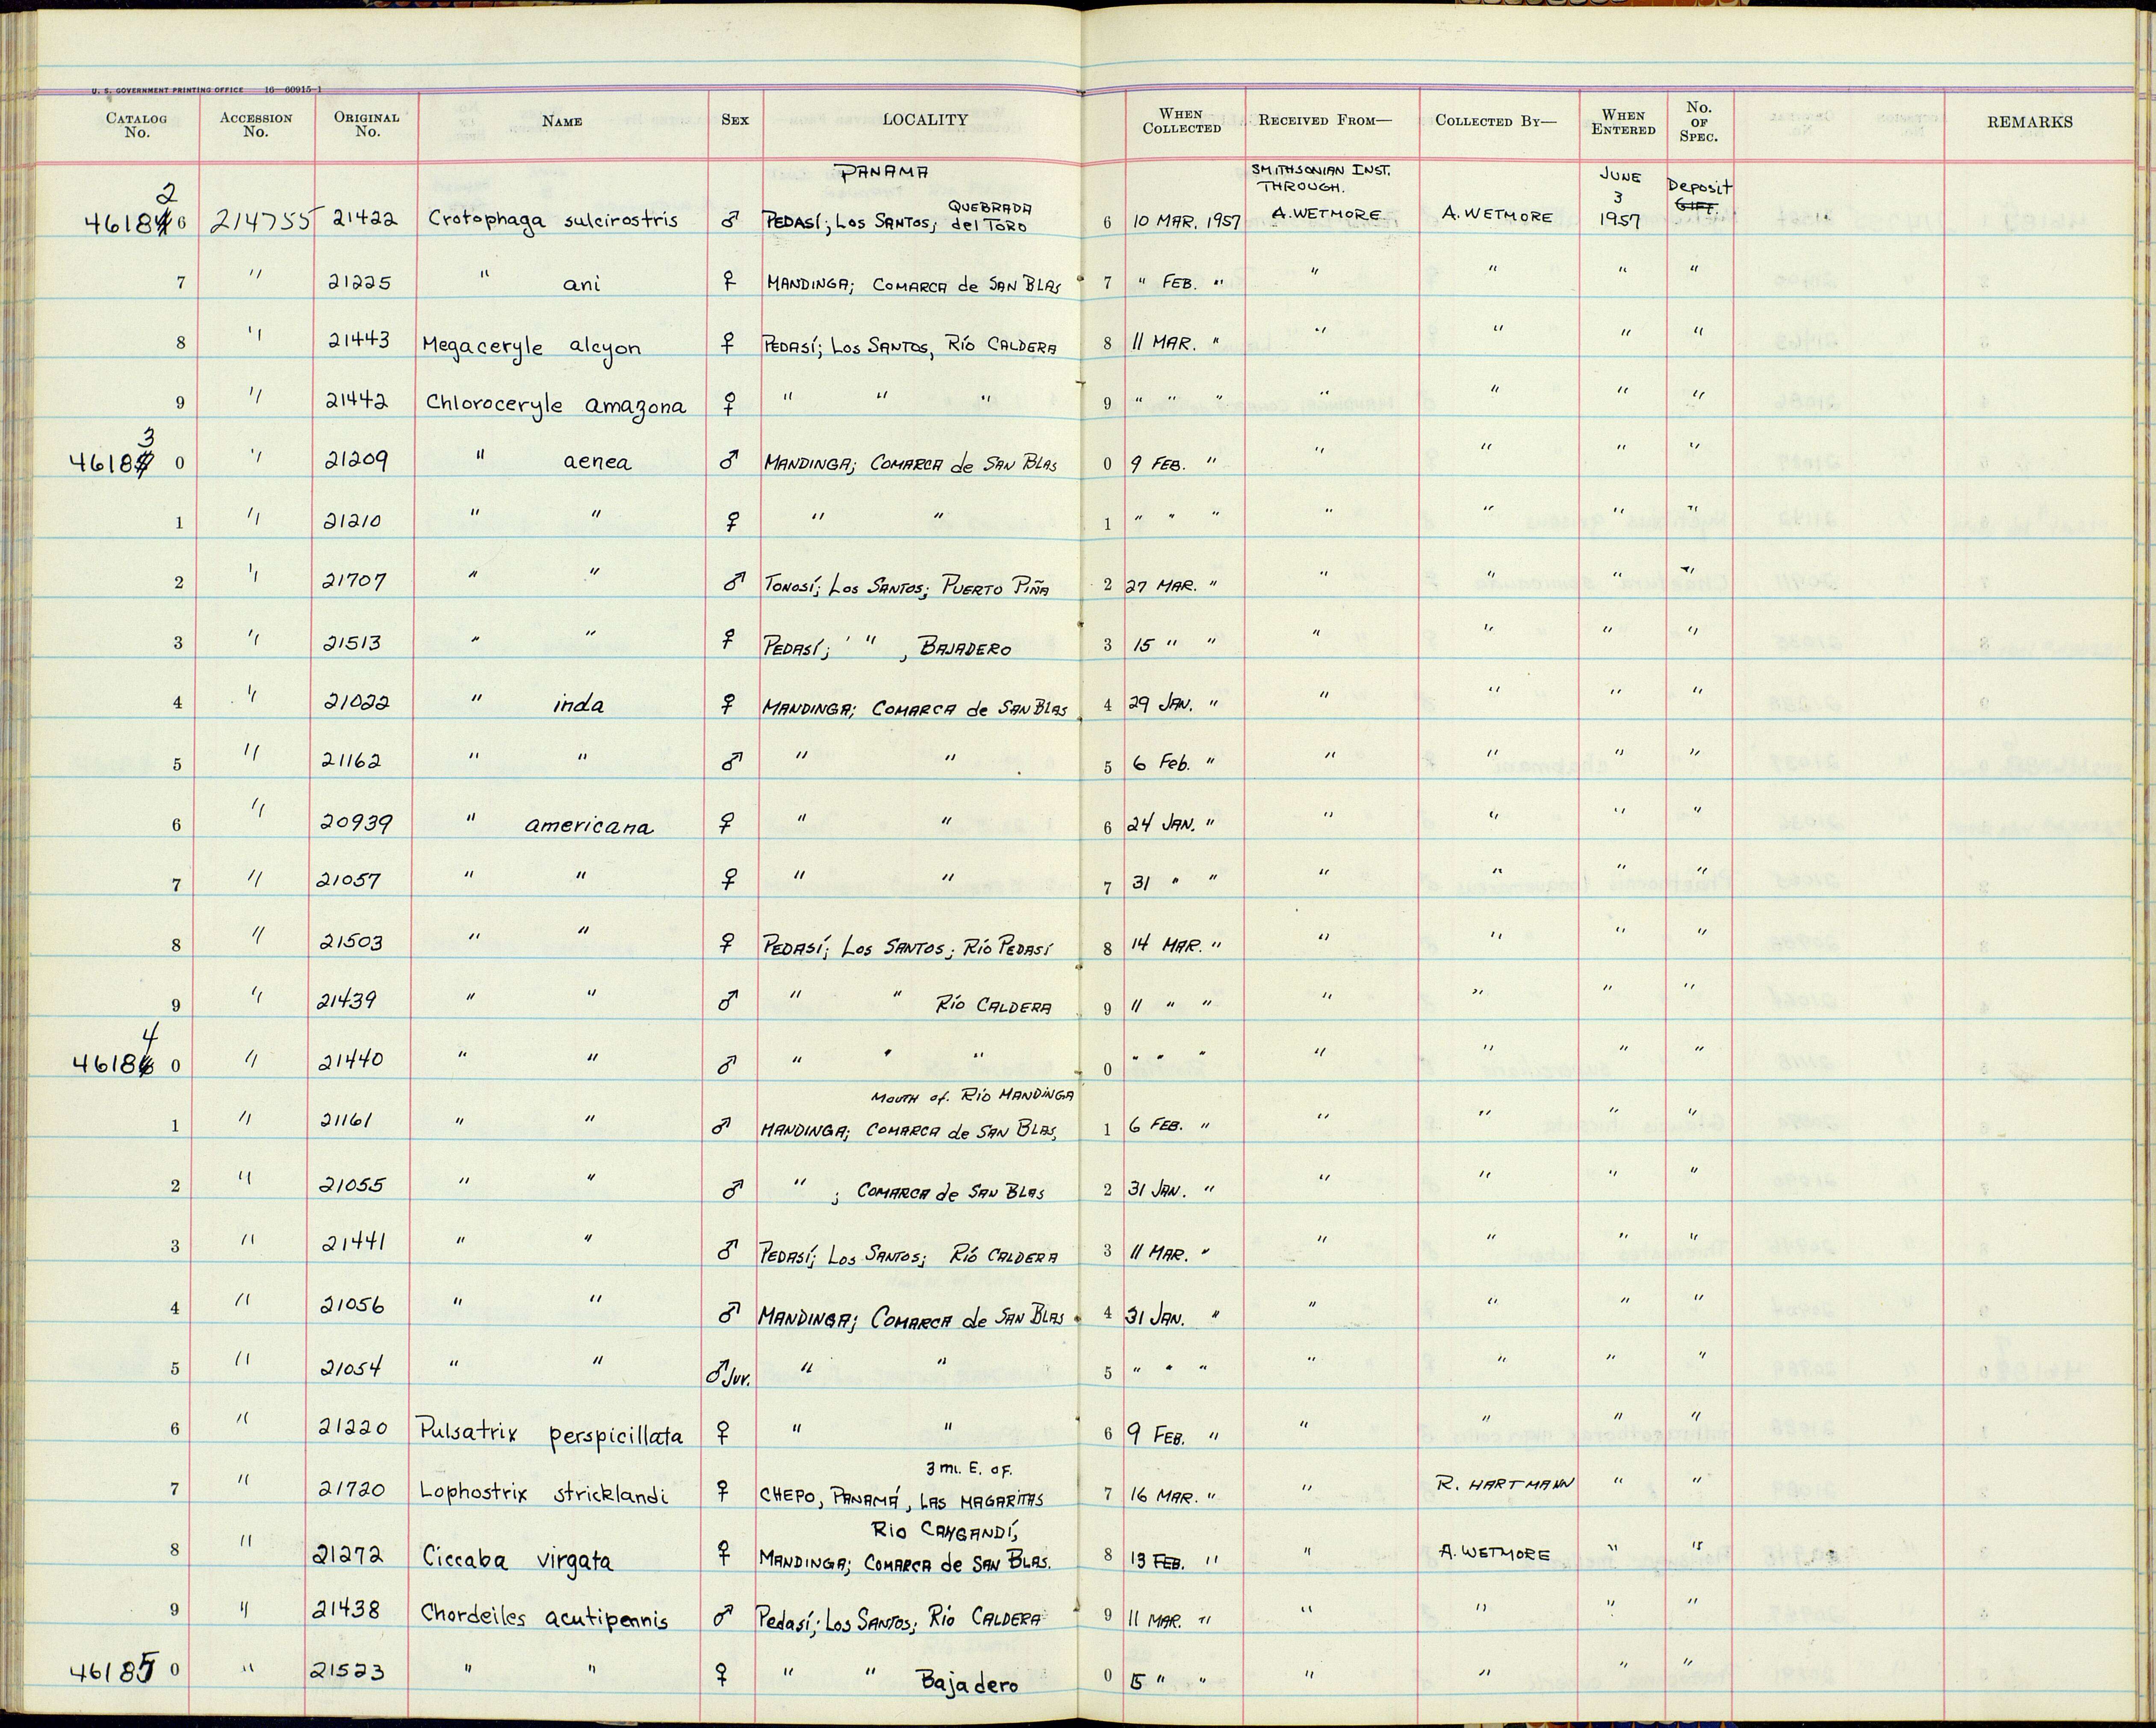 U. S. GOVERNMENT PRINTING OFFICE 16—60915-1
CATALOG No. ACCESSION No. ORIGINAL No. NAME SEX LOCALITY WHEN COLLECTED RECEIVED FROM— COLLECTED BY— WHEN ENTERED No. OF SPEC. REMARKS
PANAMA SMITHSONIAN INST. THROUGH. JUNE 3 Deposit
2 QUEBRADA GIFT.
46184 6 214755 21422 Crotophaga sulcirostris ♂ PEDASÍ; LOS SANTOS; del TORO 6 10 MAR. 1957 A. WETMORE A. WETMORE 1957
7 " 21225 " ani ♀ MANDINGA; COMARCA de SAN BLAS 7 " FEB. " " " " "
8 " 21443 Megaceryle alcyon ♀ PEDASÍ; LOS SANTOS, RÍO CALDERA 8 11 MAR. " " " " "
9 " 21442 Chloroceryle amazona ♀ " " " 9 " " " " " " "
3
4618 0 " 21209 " aenea ♂ MANDINGA; COMARCA de SAN BLAS 0 9 FEB. " " " " "
1 " 21210 " " ♀ " " 1 " " " " " " "
2 " 21707 " " ♂ TONOSÍ; LOS SANTOS; PUERTO PIÑA 2 27 MAR. " " " " "
3 " 21513 " " ♀ PEDASÍ; " " , BAJADERO 3 15 " " " " " "
4 " 21022 " inda ♀ MANDINGA; COMARCA de SAN BLAS 4 29 JAN. " " " " "
5 " 21162 " " ♂ " " 5 6 Feb. " " " " "
6 " 20939 " americana ♀ " " 6 24 JAN. " " " " "
7 " 21057 " " ♀ " " 7 31 " " " " " "
8 " 21503 " " ♀ PEDASÍ; LOS SANTOS; RÍO PEDASÍ 8 14 MAR. " " " " "
9 " 21439 " " ♂ " " RÍO CALDERA 9 11 " " " " " "
4
4618 0 " 21440 " " ♂ " " " 0 " " " " " " "
MOUTH of. RÍO MANDINGA
1 " 21161 " " ♂ MANDINGA; COMARCA de SAN BLAS, 1 6 FEB. " " " " "
2 " 21055 " " ♂ " ; COMARCA de SAN BLAS 2 31 JAN. " " " " "
3 " 21441 " " ♂ PEDASÍ; LOS SANTOS; RÍO CALDERA 3 11 MAR. " " " " "
4 " 21056 " " ♂ MANDINGA; COMARCA de SAN BLAS 4 31 JAN. " " " " "
5 " 21054 " " ♂ Juv. " " 5 " " " " " " "
6 " 21220 Pulsatrix perspicillata ♀ " " 6 9 FEB. " " " " "
3 mi. E. of.
7 " 21720 Lophostrix stricklandi ♀ CHEPO, PANAMÁ, LAS MAGARITAS 7 16 MAR. " " R. HARTMANN " "
RIO CANGANDÍ,
8 " 21272 Ciccaba virgata ♀ MANDINGA; COMARCA de SAN BLAS. 8 13 FEB. " " A. WETMORE " "
9 " 21438 Chordeiles acutipennis ♂ Pedasí; LOS SANTOS; RÍO CALDERA 9 11 MAR. " " " " "
46185 0 " 21523 " " ♀ " " Bajadero 0 15 " " " " " "